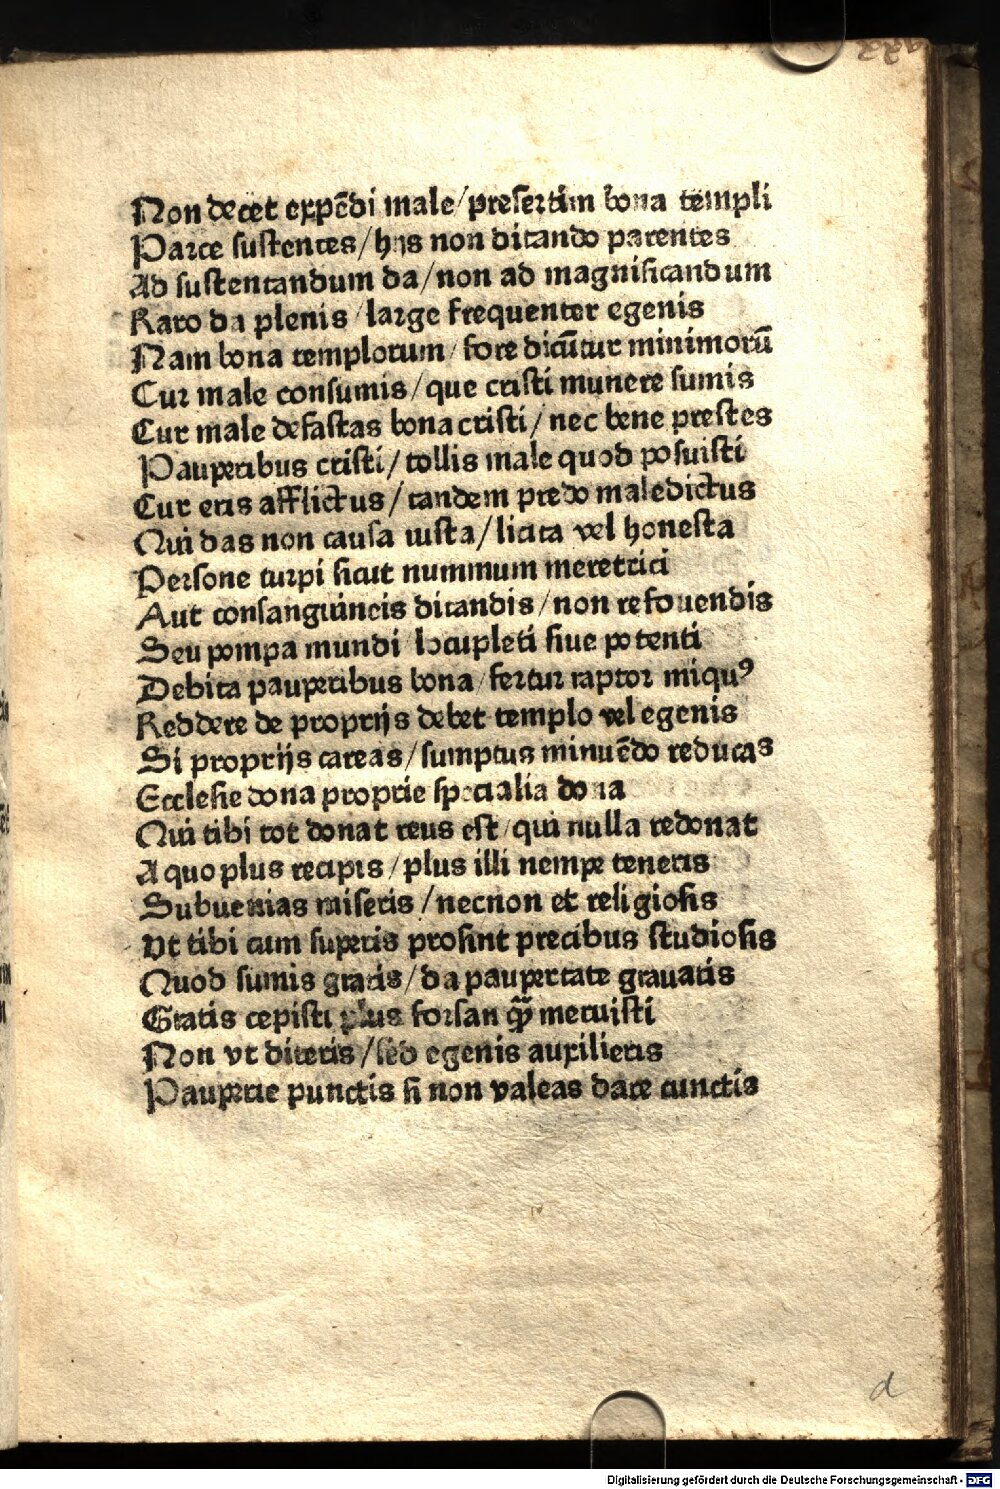 Non decet expēdi male/presertim bona templi
Parce sustentes/hijs non ditando parentes
Ad sustentandum da/non ad magnificandum
Raro da plenis/large frequenter egenis
Nam bona templorum/fore dicūtur minimorū
Cur male consumis/que cristi munere sumis
Cur male defastas bona cristi/nec bene prestes
Pauperibus cristi/tollis male quod posuisti
Cur eris afflictus/tandem predo maledictus
Qui das non causa iusta/licita vel honesta
Persone turpi sicut nummum meretrici
Aut consanguineis ditandis/non refouendis
Seu pompa mundi locupleti siue potenti
Debita pauperibus bona/fertur raptor iniquꝰ
Reddere de proprijs debet templo vel egenis
Si proprijs careas/sumptus minuēdo reducas
Ecclesie dona proprie specialia dona
Qui tibi tot donat reus est/qui nulla redonat
A quo plus recipis/plus illi nempe teneris
Subuenias miseris/necnon et religiosis
Vt tibi cum superis prosint precibus studiosis
Quod sumis gratis/da paupertate grauatis
Gratis cepisti plus forsan q̄ꝫ metuisti
Non vt diteris/sed egenis auxilieris
Pauperie punctis si non valeas dare cunctis
d
Digitalisierung gefördert durch die Deutsche Forschungsgemeinschaft - DFG